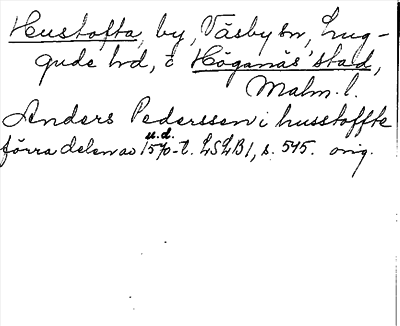 Hustofta, by, Väsby sn, Lug-
gude hd, i Höganäs' stad,
Malm. l.
Anders Pederssen i husstoffte
u.d.
förra delen av 1570-t. LSLB1, s. 545. orig.